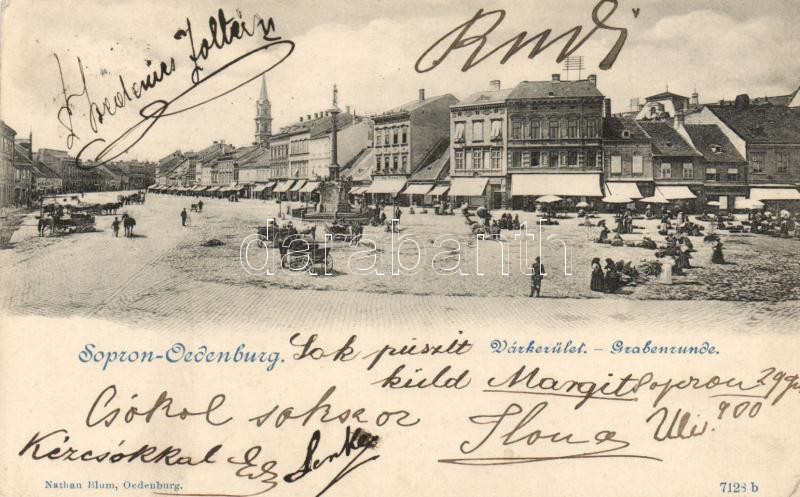 Szedenics Zoltán
Rudi
darabanth
Sopron-Oedenburg.
Várkerület. - Grabenrunde.
Sok puszit
küld Margit Sopron 29
900
Csókol sokszor Ilona
Kézcsókkal
Nathan Blum, Oedenburg.
7128 b